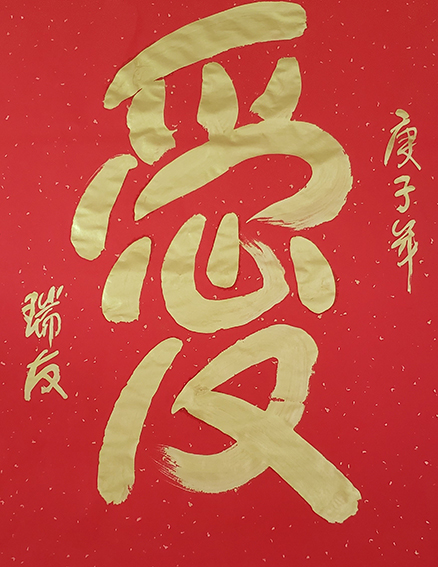 庚子年
愛
瑞友